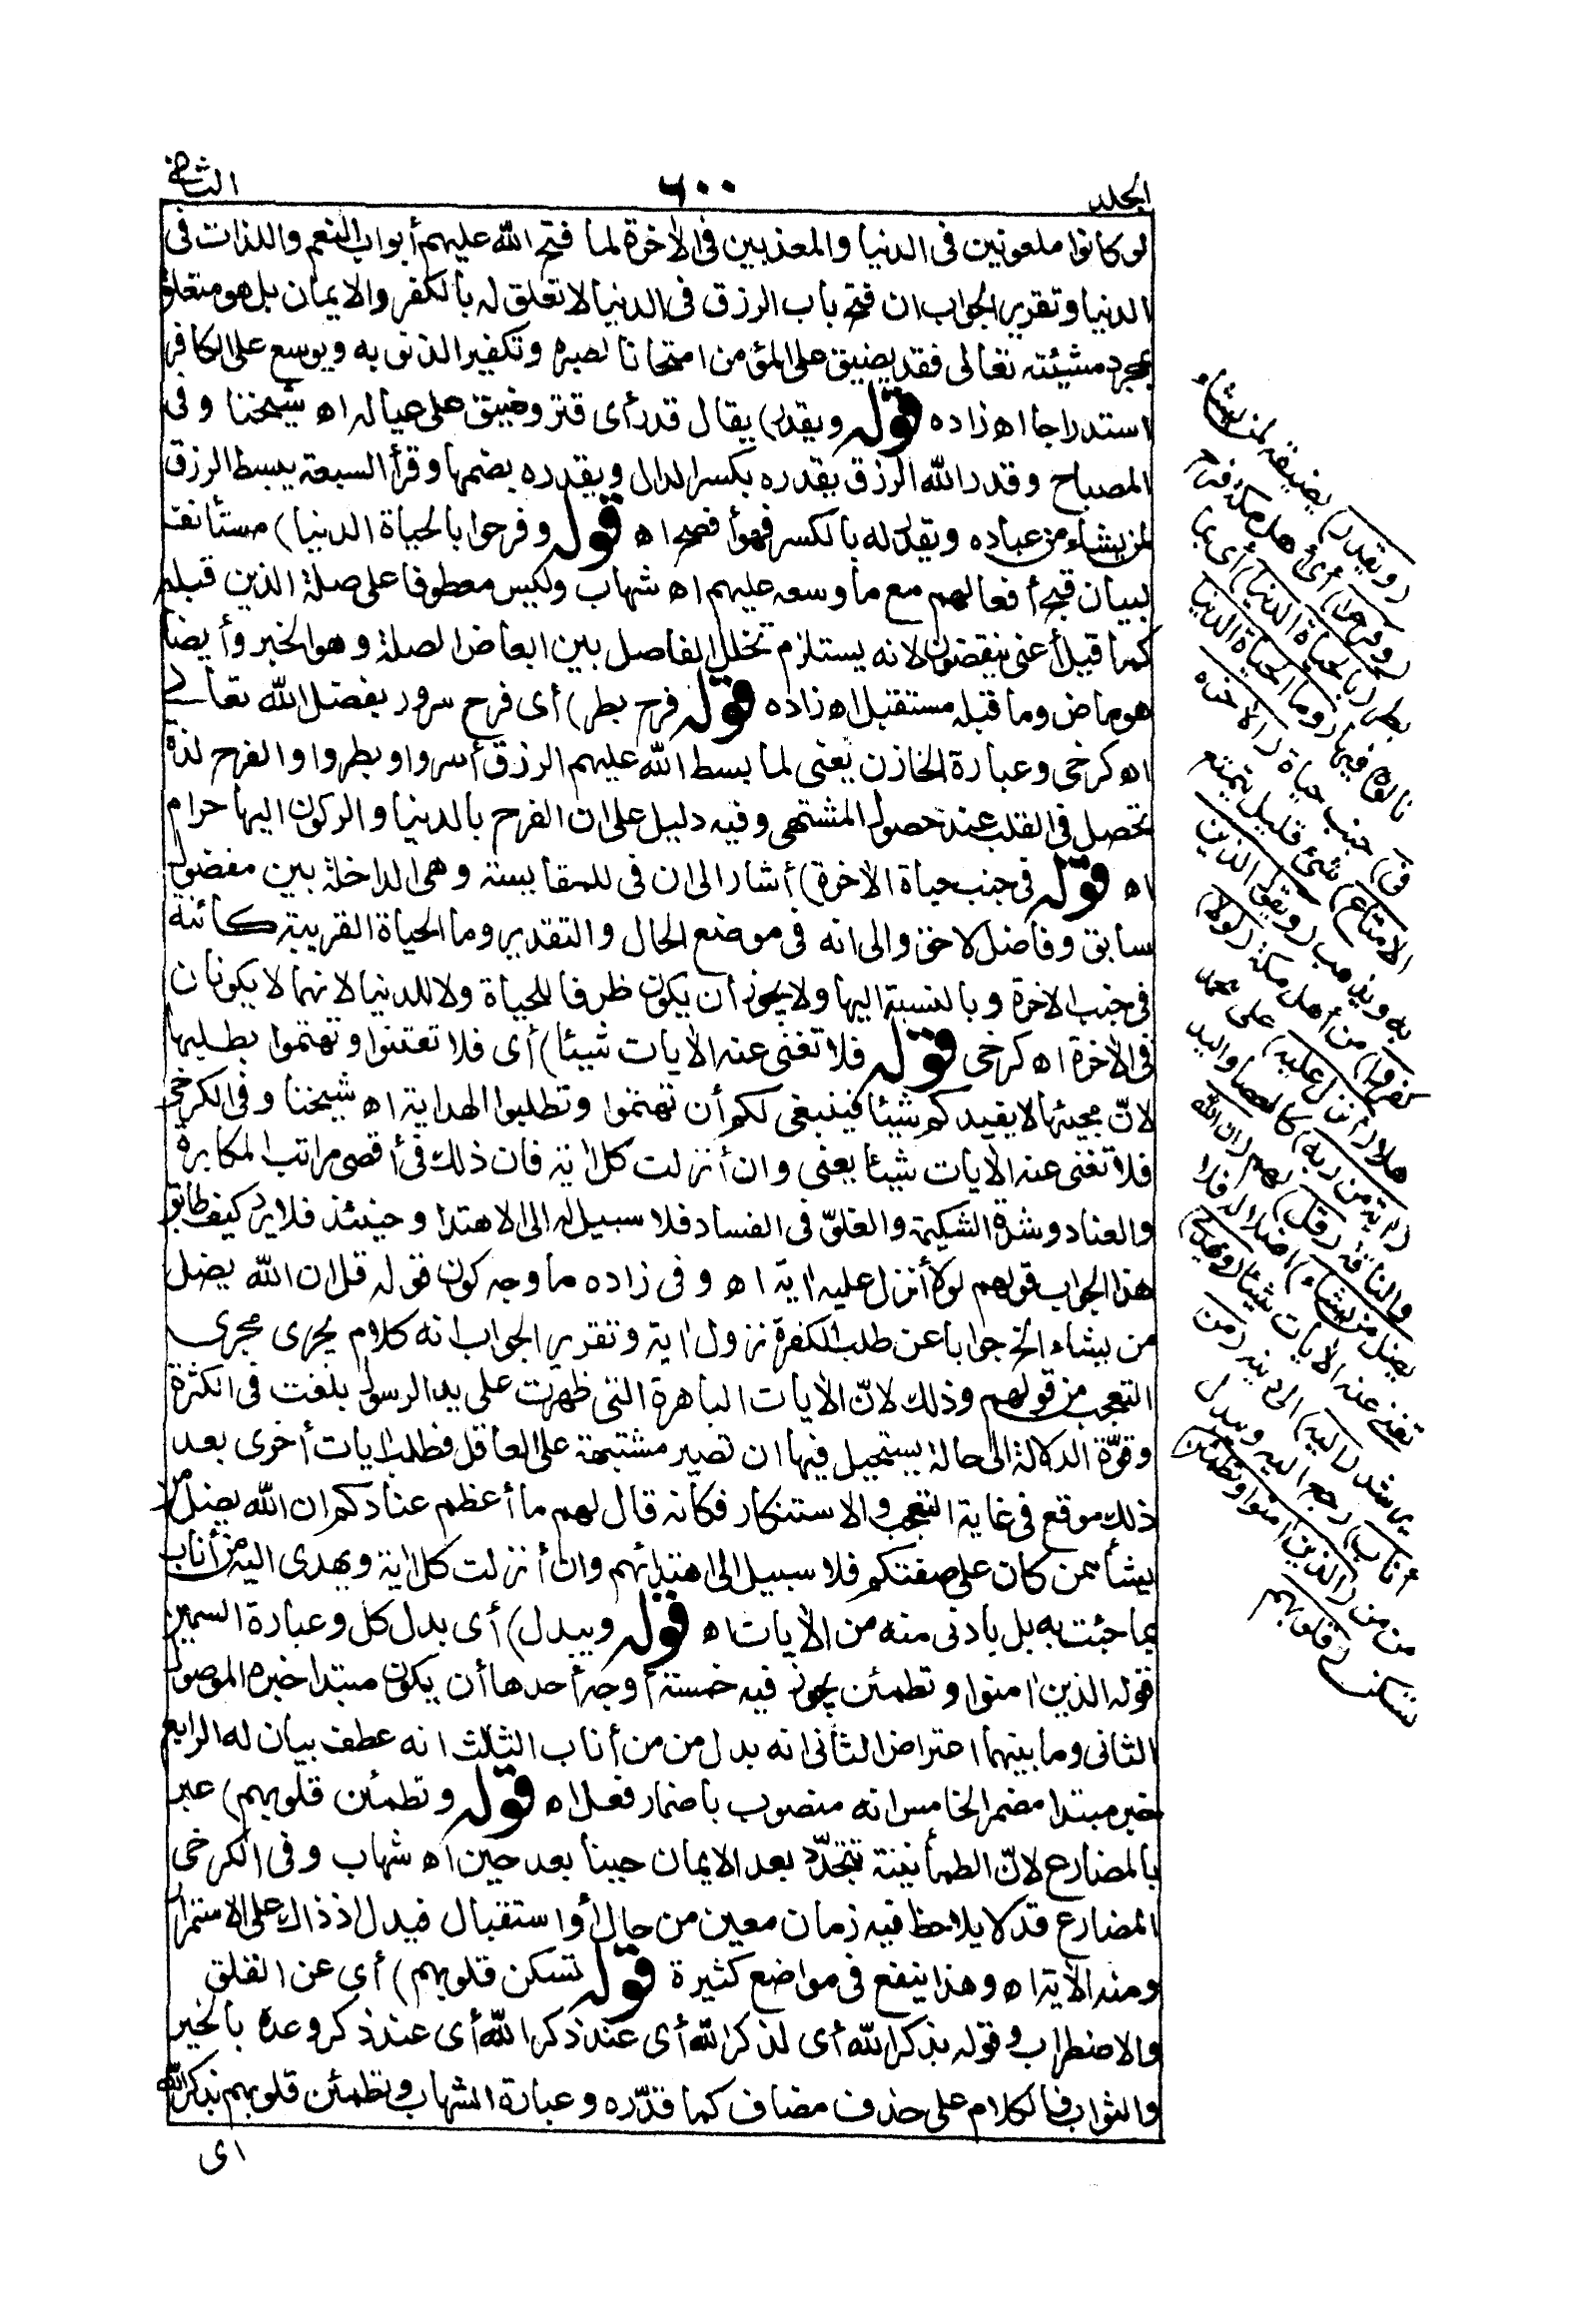 الجلد
٦٠٠
الثانى
لو كانوا ملعونين فى الدنيا والمعذبين فى الاٰخرة لما فتح الله عليهم أبواب النعم واللذات فى
الدنيا وتقرير الجواب ان فتح باب الرزق فى الدنيا لا تعلق له بالكفر والايمان بل هو متعلق
بمجرد مشيئته تعالى فقد يضيق على المؤمن امتحانا لصبره وتكفير الذنوبه ويوسع على الكافر
استدراجا اه زاده قوله ويقدر) يقال قدر أى قتر وضيق على عياله اه شيخنا وفى
المصباح وقدر الله الرزق يقدره بكسر الدال ويقدره بضمها وقرأ السبعة يبسط الرزق
لمن يشاء من عباده ويقدر له بالكسر فهو أفصح اه قوله وفرحوا بالحياة الدنيا) مستأنفة
لبيان قبح أفعالهم مع ما وسعه عليهم اه شهاب وليس معطوفا على صلة الذين قبله
كما قيل أعنى ينقضون لانه يستلزم تخلل الفاصل بين ابعاض الصلة وهو الخبر وأيضا
هو ماض وما قبله مستقبل اه زاده قوله فرح بطر) أى فرح سرور بفضل الله تعالى
اه كرخى وعبارة الخازن يعنى لما بسط الله عليهم الرزق أسروا وبطروا والفرح لذة
تحصل فى القلب عند حصول المشتهى وفيه دليل على ان الفرح بالدنيا والركون اليها حرام
اه قوله فى جنب حياة الاٰخرة) أشار الى ان فى للمقايسة وهى الداخلة بين مفضول
سابق وفاضل لاحق والى انه فى موضع الحال والتقدير وما الحياة القريبة كائنة
فى جنب الاخرة وبالنسبة اليها ولا يجوز أن يكون ظرفا للحياة ولا للدنيا لانهما لا يكونان
فى الاٰخرة اه كرخى قوله فلا تغنى عنه الاٰيات شيئا) أى فلا تعتنوا وتهتموا بطلبها
لانّ مجيئها لا يفيدكم شيئا فينبغى لكم أن تهتموا وتطلبوا الهداية اه شيخنا وفى الكرخى
فلا تغنى عنه الاٰيات شيئا يعنى وان أنزلت كل اٰية فان ذلك فى أقصى مراتب المكابرة
والعناد وشدة الشكيمة والغلوّ فى الفساد فلا سبيل له الى الاهتدا وحينئذ فلا يرد كيف طابق
هذا الجواب قولهم لولا أنزل عليه اٰية اه وفى زاده ما وجه كون قوله قل ان الله يضل
من يشاء الخ جوابا عن طلب الكفرة نزول اٰية وتقرير الجواب انه كلام يجرى مجرى
التعجب من قولهم وذلك لانّ الاٰيات الباهرة التى ظهرت على يد الرسول بلغت فى الكثرة
وقوّة الدلالة الى حالة يستحيل فيها ان تصير مشتبهة على العاقل فطلب اٰيات أخرى بعد
ذلك موقع فى غاية التعجب والاستنكار فكانه قال لهم ما أعظم عنادكم ان الله يضل من
يشأ ممن كان على صفتكم فلا سبيل الى اهتدائهم وان أنزلت كل اٰية ويهدى اليه من أناب
بما جئت به بل بادنى منه من الاٰيات اه قوله ويبدل) أى بدل كل وعبارة السمين
قوله الذين اٰمنوا وتطمئن يجوز فيه خمسة أوجه أحدها أن يكون مبتدا خبره الموصول
الثانى وما بينهما اعتراض الثانى انه بدل من من أناب الثالث انه عطف بيان له الرابع
خبر مبتدا مضمر الخامس انه منصوب باضمار فعل اه قوله وتطمئن قلوبهم) عبر
بالمضارع لانّ الطمأنينة تتجدّد بعد الايمان حينا بعد حين اه شهاب وفى الكرخى
المضارع قد لا يلاحظ فيه زمان معين من حال أو استقبال فيدل اذ ذاك على الاستمرار
ومنه الاٰية اه وهذا ينفع فى مواضع كثيرة قوله تسكن قلوبهم) أى عن القلق
والاضطراب وقوله بذكر الله أى لذكر الله أى عند ذكر الله أى عند ذكر وعده بالخير
والثواب فالكلام على حذف مضاف كما قدّره وعبارة الشهاب وتطمئن قلوبهم بذكر الله
اى
(ويقدر) يضيقه لمن يشاء
(وفرحوا) أى أهل مكة فرح
بطر (بالحياة الدنيا) أى بما
نالوه فيها (وما الحياة الدنيا
فى) جنب حياة (الاٰخرة
الا متاع) شئ قليل يتمتع
به ويذهب (ويقول الذين
كفروا) من أهل مكة (لولا)
هلا (أنزل عليه) على محمد
(اٰية من ربه) كالعصا واليد
والناقة (قل) لهم (ان الله
يضل من يشاء) اضلاله فلا
تغنى عنه الاٰيات شيئا (ويهدى)
يرشد (اليه) الى دينه (من
أناب) رجع اليه ويبدل
من من (الذين اٰمنوا وتطمئن)
تسكن (قلوبهم